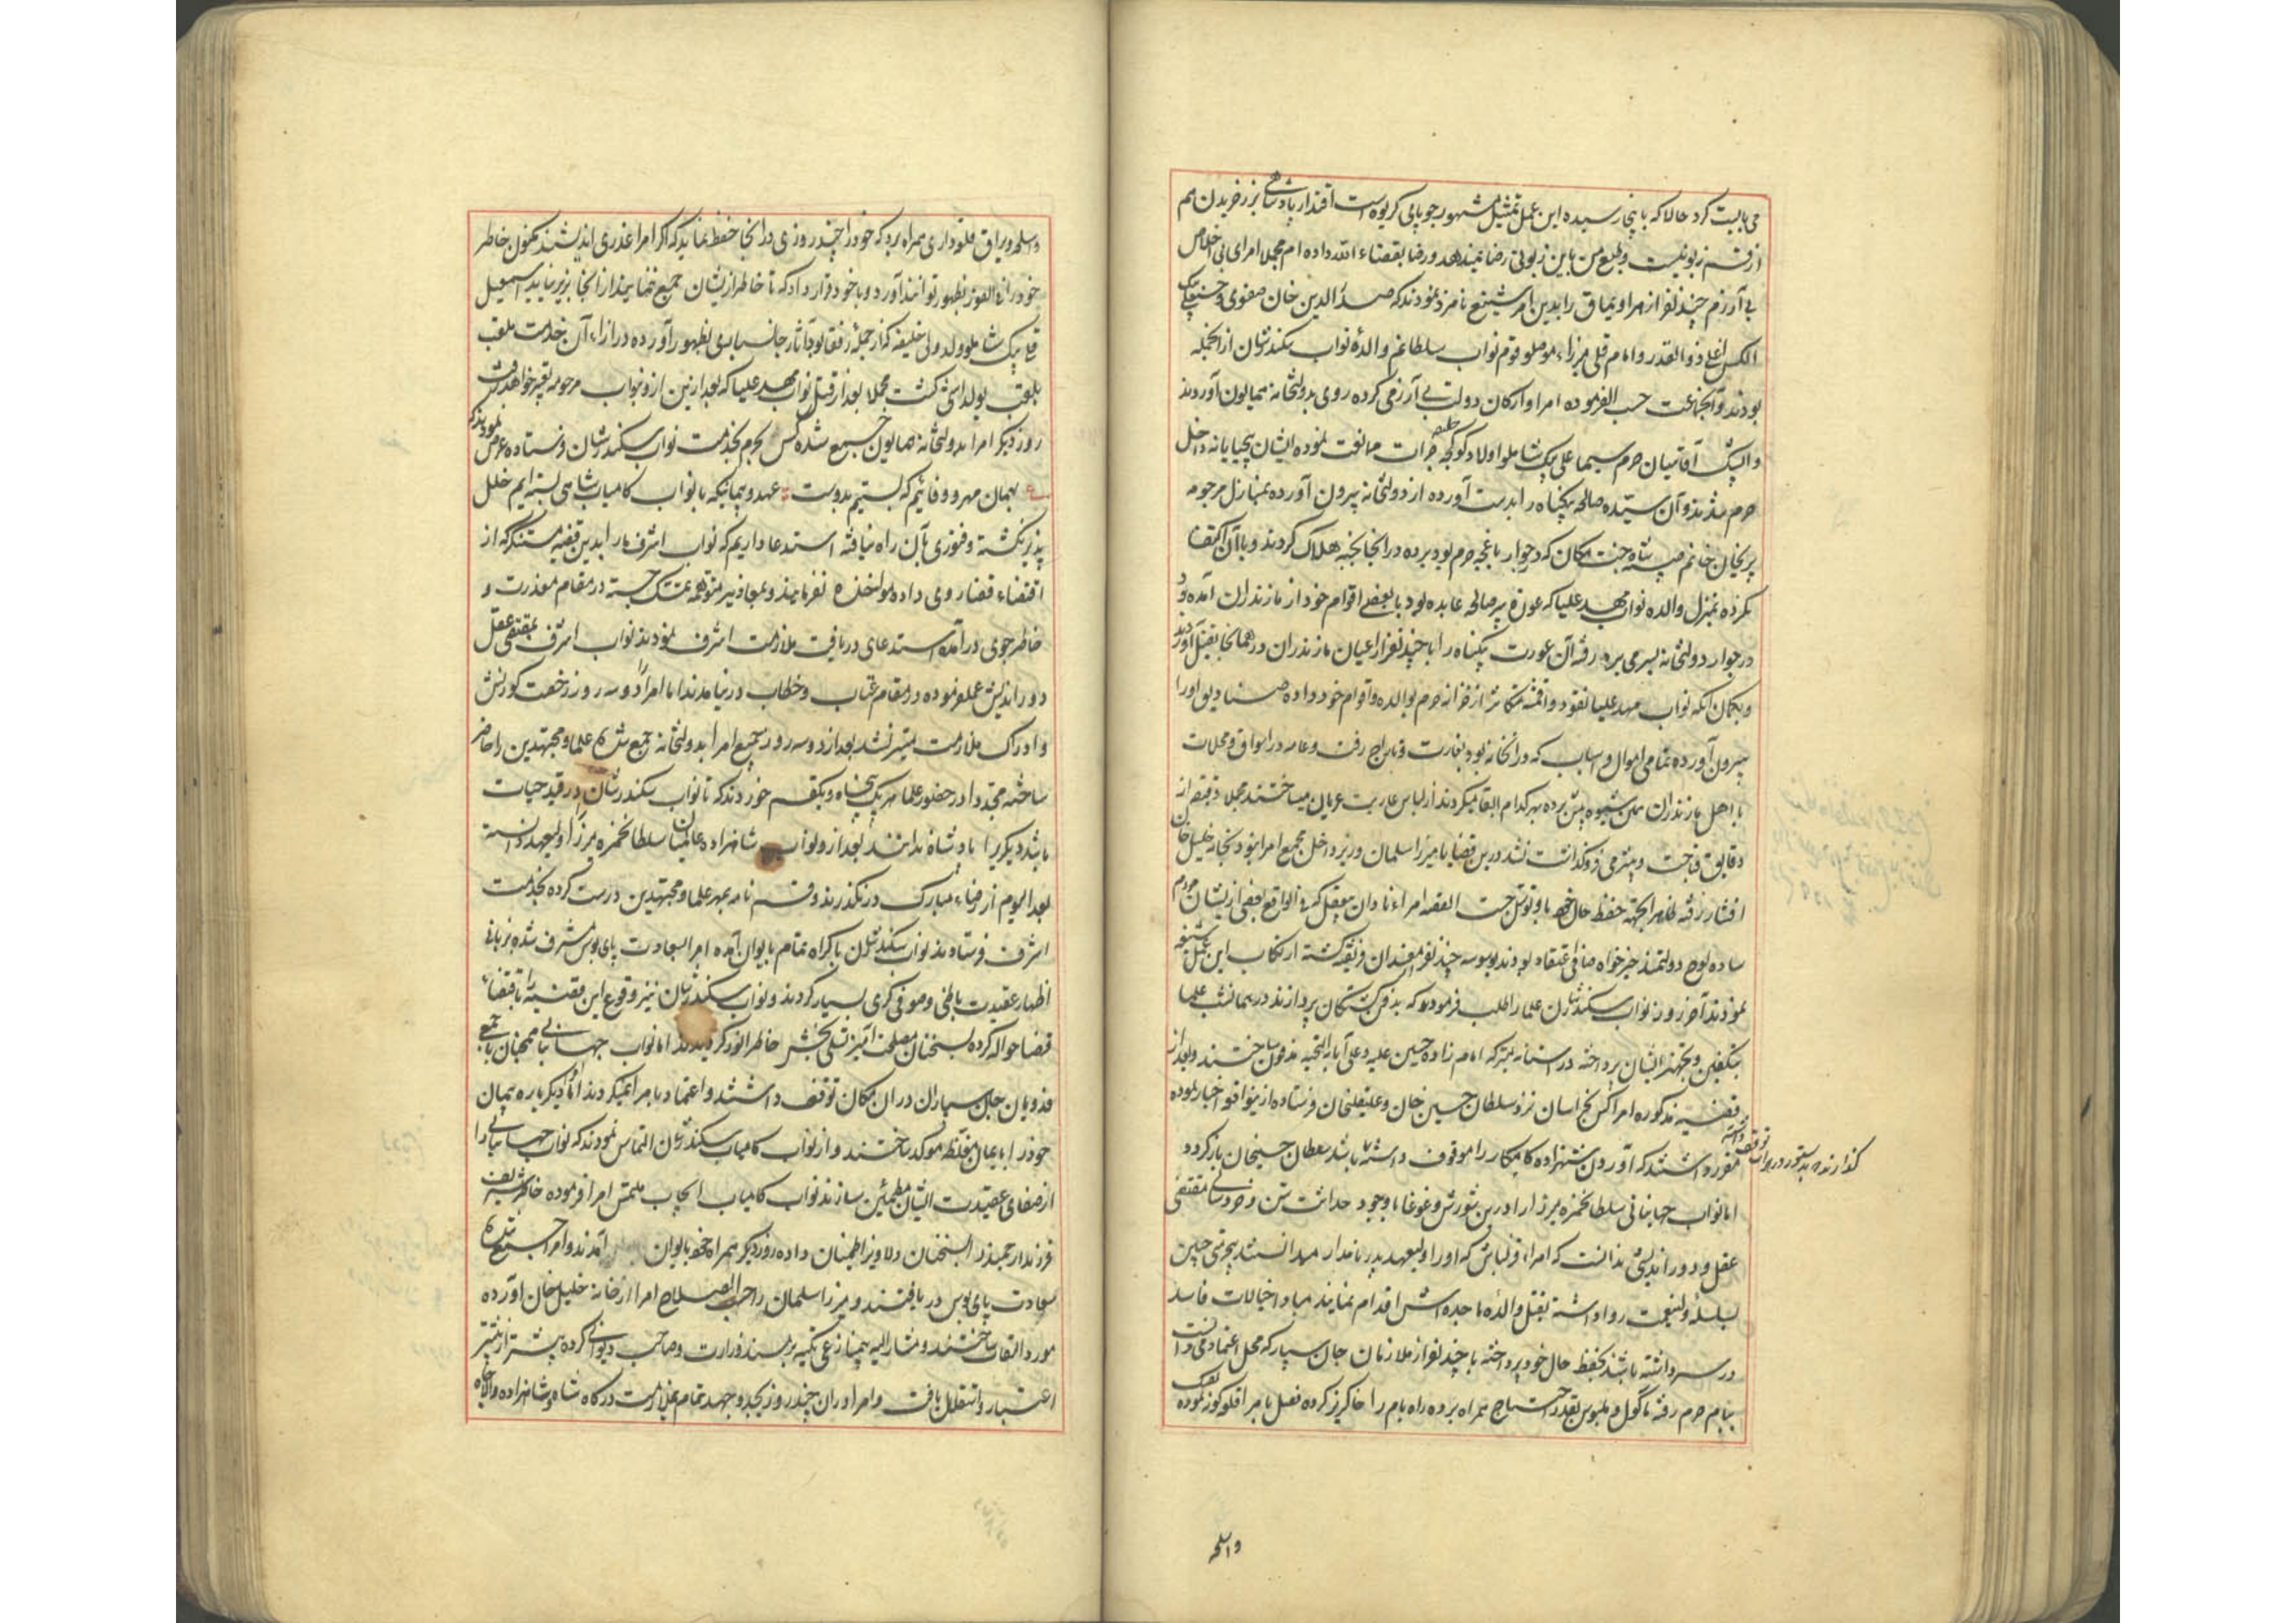 می بایست کرد حالا که باینجا رسیده این عمل تمثیل مشهور چوپانی کریوه است اقتدار پادشاهی بزر خریدن هم
از قسم زبونیست و طبع من باین زبونی رضا نمیدهد و رضا بقضاء الله داده ام مجملا امرای بی اخلاص
بی آزرم چند نفر از هر اویماق را بدین امر شنیع نامزد نمودند که صدر الدین خان صفوی و
ذوالقدر و امام قلی میرزاء موصلو قوم نواب سلطانم والدهٔ نواب سکندرشان از آنجمله
بودند و آنجماعت حسب الفرموده امرا و ارکان دولت بی آزرمی کرده روی بدولتخانه همایون آوردند
آقاسیان حرم سیما علی بیک شاملو اولاد کوکجه خلیفه جرات ممانعت نموده ایشان بیحیایانه داخل
حرم شدند و آن سیّده صالحه بیگناه را بدست آورده از دولتخانه بیرون آورده بمنازل مرحومه
پریخان خانم صبیه شاه جنت مکان که در جوار باغچه حرم بود برده در آنجا بخبه هلاک کردند و بآن اکتفا
نکرده بمنزل والده نواب مهد علیا که عورة پیر صالحه عابده بود با بعضی اقوام خود از مازندران آمده و
در جوار دولتخانه بسر می برد رفته آن عورت بیگناه را با چند نفر از اعیان مازندران در همانجا بقتل آوردند
و بگمان آنکه نواب مهد علیا نقود و اقمشه متکاثر از خزانه حرم بوالده و اقوام خود داده صنادیق او را
بیرون آورده تمامی اموال و اسباب که در آنخانه بود بغارت و تاراج رفت و عامه در اسواق و محلات
با اهل مازندران همین شیوه پیش برده بهر کدام القا میکردند از لباس عاریت عریان میساختند مجملا دقیقه از
دقایق قباحت و بیشرمی فروگذاشت نشد درین قضایا میرزا سلمان وزیر داخل مجمع امرا نبود بخانه خلیل خان
افشار رفته ظاهرا بجهته حفظ حال خود باو توسل جست القصه امراء نادان بیعقل که فی الواقع بعضی ازیشان مردم
ساده لوح دولتمند خیرخواه صافی اعتقاد بودند بوسوسه چند نفر مفسدان فریفته گشته ارتکاب این عمل شنیع
نمودند آخر روز نواب سکندرشان علما را طلب فرمودند که بدفن کشتگان پردازند در همانشب علما
بتکفین و تجهیز ایشان پرداخته در استانه متبرکه امام زاده حسین علیه و علی آبائه التحیه مدفون ساختند و بعد از
قضیه مذکوره امرا کس بخراسان نزد سلطان حسین خان و علیقلیخان فرستاده ازینواقعه اخبار نموده
مقرر داشتند که آوردن شهزاده کامکار را موقوف داشته باشد سلطان حسینخان باز گردد
اما نواب جهانبانی سلطان حمزه میرزا را درین شورش و غوغا با وجود حداثت سن و خردسالی مقتضی
عقل و دوراندیشی ندانست که امراء قزلباش که او را ولیعهد پدر نامدار میدانستند بیحرمتی چنین
بسلسلهٔ ولینعمت روا داشته بقتل والدهٔ ماجده اش اقدام نمایند مبادا خیالات فاسد
در سر داشته باشند بحفظ حال خود پرداخته با چند نفر از ملازمان جان سپار که محل اعتماد می دانست
ببام حرم رفته ماکول و ملبوس بقدر احتیاج همراه برده راه بام را خاکریز کرده فصل بامرا قلو کوز نموده
واسلحه
واسلحه و یراق قلعه داری همراه برد که خود را چند روزی در آنجا حفظ نماید که اگر امرا غدری اندیشند مکنون خاطر
خود را فی الفور بظهور نتوانند آورد و با خود قرار داد که تا خاطر ازیشان جمع ننماید از آنجا بزیر نیاید اسمعیل
قلی بیک شاملو ولد ولی خلیفه که از جمله رفقا بود آثار جانسپاری بظهور آورده در ازاء آن خدمت ملقب
بلقب یولداشی گشت مجملا بعد از قتل نواب مهد علیا که بعد ازین ازو بنواب مرحومه تعبیر خواهد رفت
روز دیگر امرا بدولتخانه همایون جمع شده کس بحرم بخدمت نواب سکندرشان فرستاده عرض نمودند که
ع بهمان مهر و وفائیم که بستیم بدوست عهد و پیمانیکه با نواب کامیاب شاهی بسته ایم خلل
پذیر نگشته و فتوری بآن راه نیافته استدعا داریم که نواب اشرف ما را بدین قضیه مستنکره که از
اقتضاء قضا روی داده مواخذه نفرمایند و بمعاذیر مموّهه متمسک جسته در مقام معذرت و
خاطرجوی درآمده استدعای دریافت ملازمت اشرف نمودند نواب اشرف بمقتضی عقل
دوراندیش عمل فرموده در مقام عتاب و خطاب در نیامدند اما امرا را دو سه روز رخصت کورنش
و ادراک ملازمت میسر نشد بعد از دو سه روز جمیع امرا بدولتخانه جمع شده علما و مجتهدین را حاضر
ساخته مجددا در حضور علما هر یک پنجاه و یک قسم خوردند که تا نواب سکندرشان در قید حیات
باشد دیگری را پادشاه ندانند بعد ازو نواب شاهزاده عالمیان سلطانحمزه میرزا را ولیعهد دانسته
بعد الیوم از رضاء مبارک در نگذرند و قسم نامه بمهر علما و مجتهدین درست کرده بخدمت
اشرف فرستادند نواب سکندرشان باکراه تمام بایوان آمده امرا بسعادت پای بوس مشرف شده بزبانی
اظهار عقیدت باطنی و صوفی گری بسیار کردند و نواب سکندرشان نیز وقوع این قضیه را باقتضاء
قضا حواله کرده بسخنان مصلحت آمیز تسلی بخش خاطر انور گردیدند اما نواب جهانبانی همچنان با جمعی
فدویان جان سپاران در آن مکان توقف داشتند و اعتماد بامرا نمیکردند امرا دیگر باره پیمان
خود را بایمان مغلظ موکد ساختند و از نواب کامیاب سکندرشان التماس نمودند که نواب جهانبانی را
از صفای عقیدت ایشان مطمئن سازند نواب کامیاب انجاب ملتمس امرا فرموده خاطر شریف
فرزند ارجمند را بسخنان دلاویز اطمینان داده روز دیگر همراه خود بایوان آمدند و امرا جمیع شده
سعادت پای بوس دریافتند و میرزا سلمان را حسب الصلاح امرا از خانه خلیل خان آورده
مورد التفات ساختند و مشارالیه تکیه بر مسند وزارت و صاحب دیوانی کرده پیشتر از پیشتر
اعتبار و استقلال یافت و امرا در آن چند روز بجد و جهد تمام بملازمت درگاه شاه و شاهزاده والاجاه